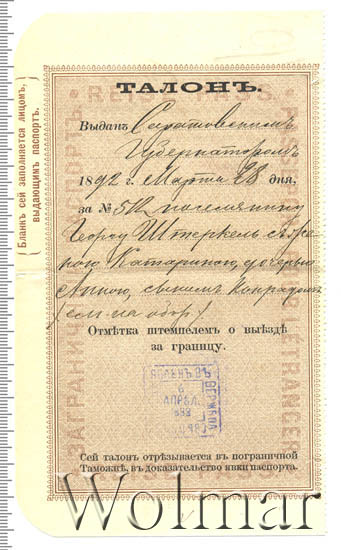 ТАЛОНЪ.
Выданъ Саратовскимъ
Губернаторомъ
1892 г. Марта 28 дня,
за № поселянину
Георгу Штеркель съ же-
ною Катариною, дочерью
Анною, сыномъ Конрадомъ
(см. на обор.)
Отмѣтка штемпелемъ о выѣздѣ
за границу.
АПРѢЛ.
Сей талонъ отрѣзывается въ пограничной
Таможнѣ, въ доказательство явки паспорта.
(Бланкъ сей заполняется лицомъ,
выдающимъ паспортъ.)
Wolmar